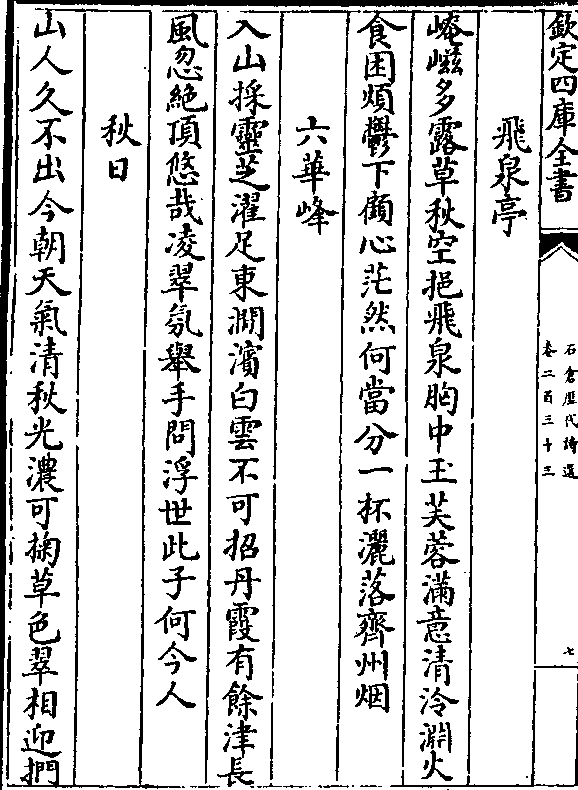 欽定四庫全書
石倉歷代詩選
卷二百三十三
七
飛泉亭
崦嵫多露草秋空挹飛泉胸中玉芙蓉滿意清泠淵火
食困煩鬱下顧心茫然何當分一杯灑落齊州烟
六華峰
入山採靈芝濯足東澗濱白雲不可招丹霞有餘津長
風忽絶頂悠哉凌翠氛舉手問浮世此子何今人
秋日
山人久不出今朝天氣清秋光濃可掬草色翠相迎捫